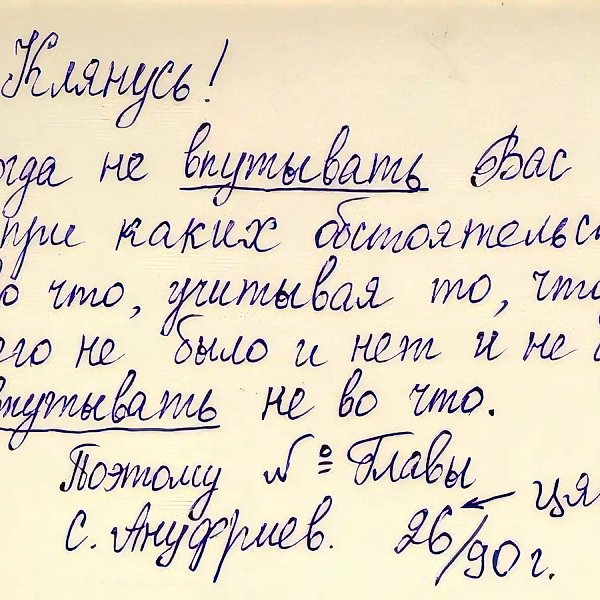 Клянусь!
огда не впутывать Вас
при каких обстоятельс
о что, учитывая то, что
его не было и нет и не
впутывать не во что.
Поэтому № Главы
с. Ануфриев. 26/90 г. ← ця